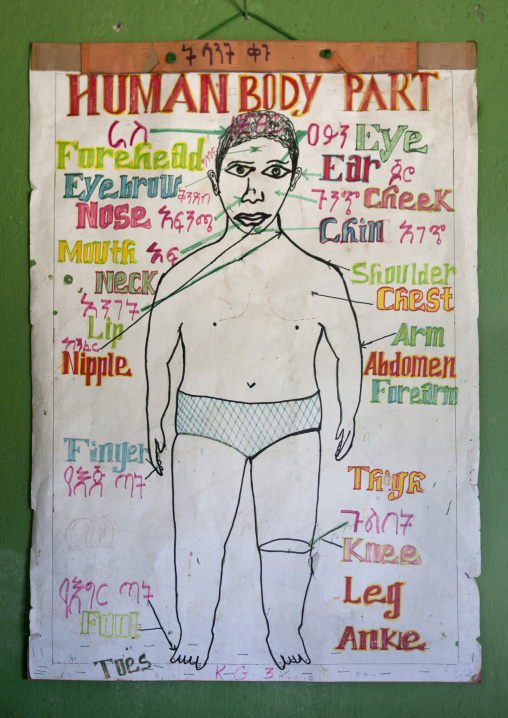 HUMAN BODY PART
ራስ
ዐይን Eye
Forehead
Ear ጆሮ
Eyebrow
ጉንጭ Cheek
Nose አፍንጫ
Chin አገጭ
Mouth አፍ
Neck
Shoulder
አንገት
Chest
Lip
Arm
ከንፈር
Nipple
Abdomen
Forearm
Finger
የእጅ ጣት
Thigh
ጉልበት
Knee
የእግር ጣት
Leg
Foot
Ankle
Toes
K-G 3